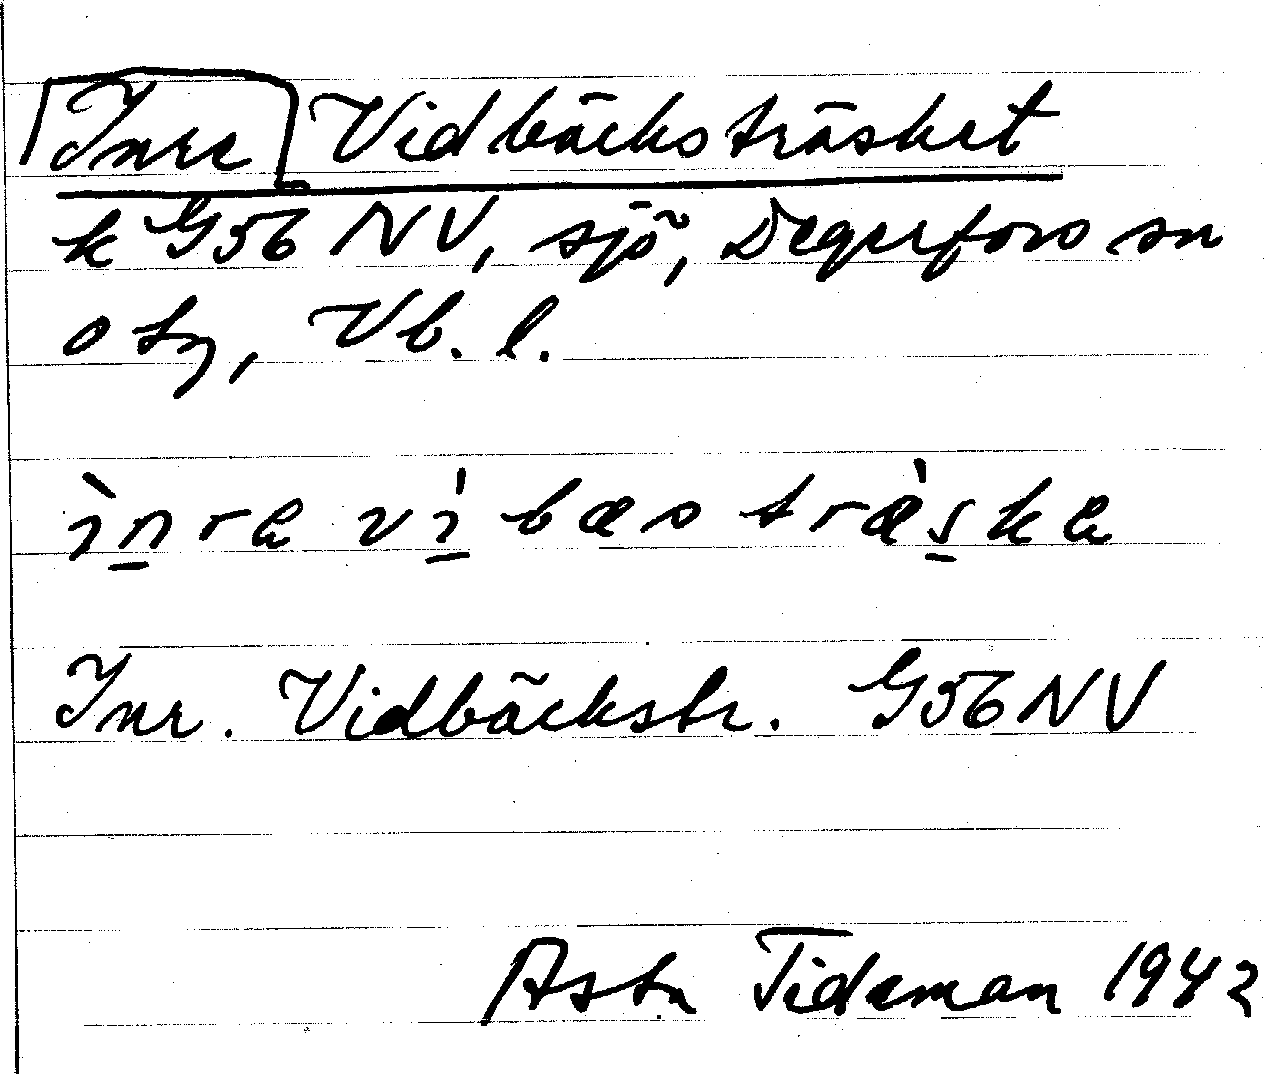 Inre Vidbäcksträsket
k G56 NV, sjö, Degerfors sn
o tg, Vb. l.
ìn̲re vı̲̍bæs træ̀s̲ke
Inr. Vidbäckstr. G56NV
Asta Tideman 1942